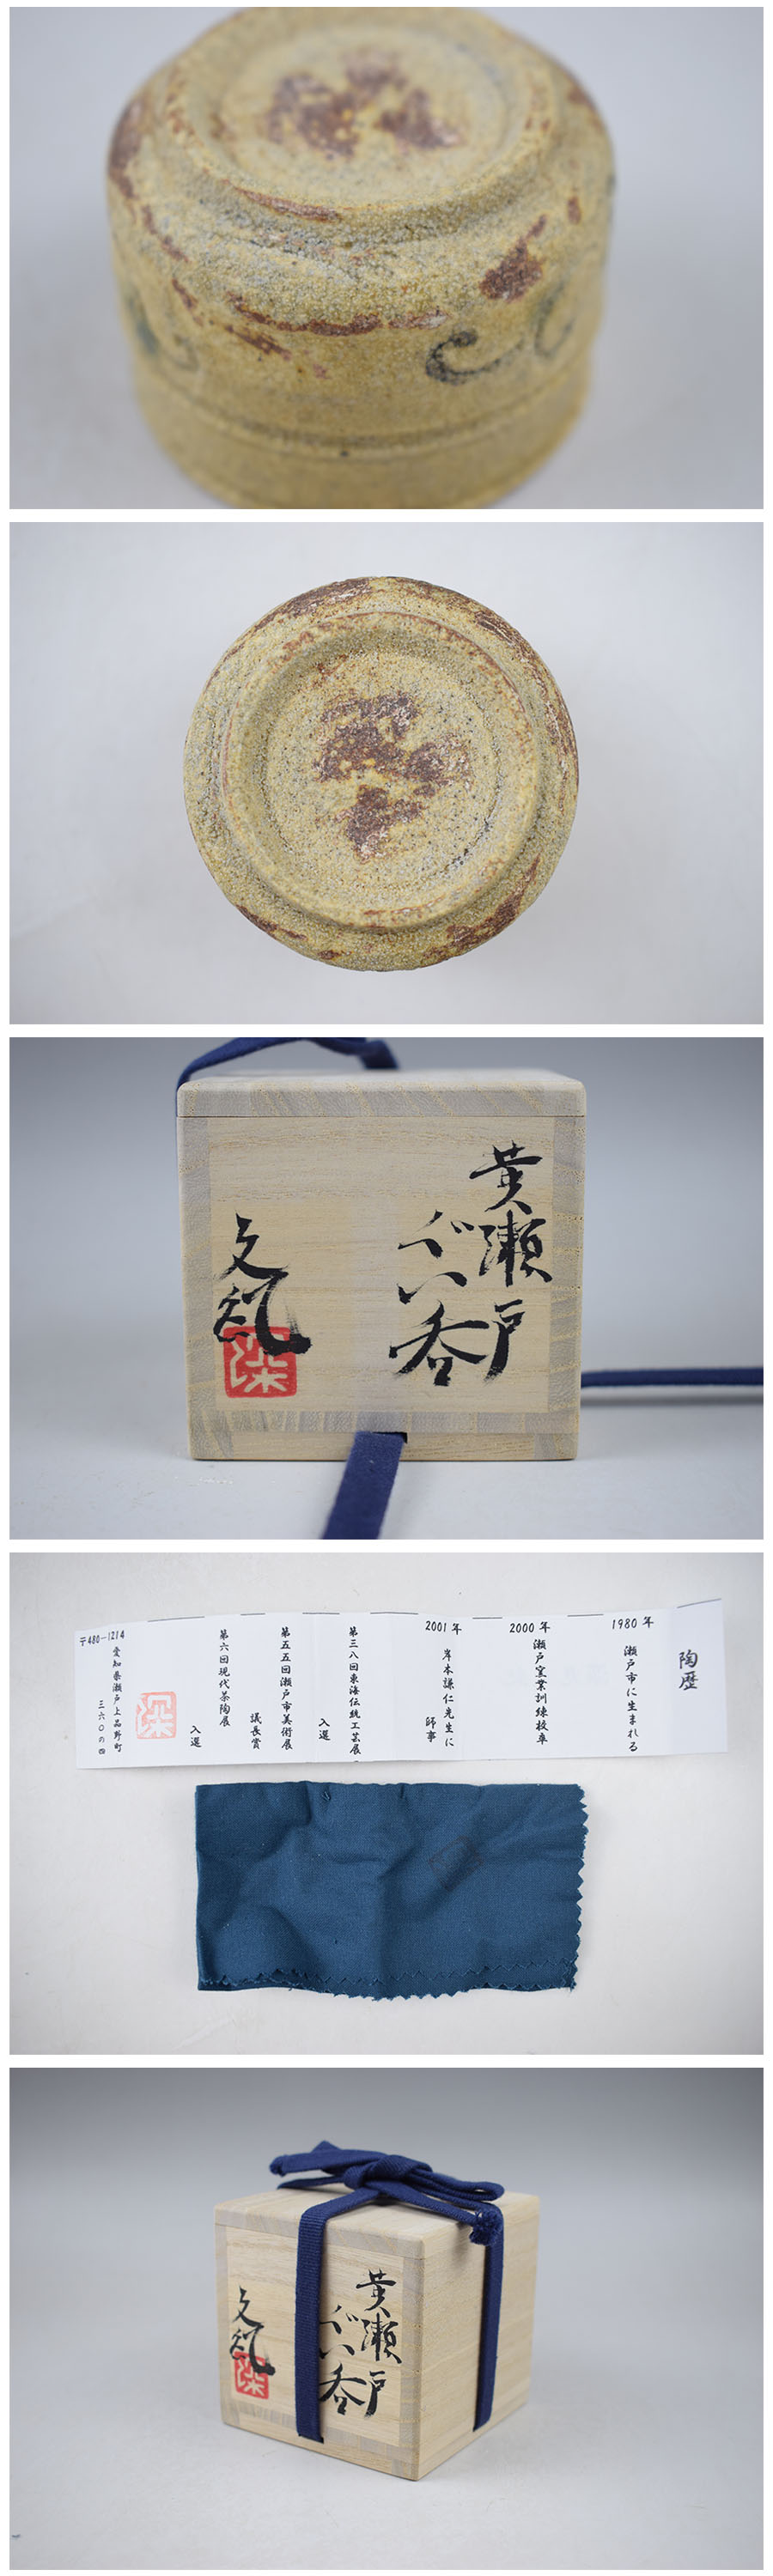 黄瀬戸
ぐい呑
文紀
深
陶歴
1980年
瀬戸市に生まれる
2000年
瀬戸窯業訓練校卆
2001年
岸本謙仁先生に
師事
第三八回東海伝統工芸展
入選
第五五回瀬戸市美術展
議長賞
第六回現代茶陶展
入選
深
〒480-1214
愛知県瀬戸上品野町
三六〇の四
黄瀬戸
ぐい呑
文紀
深